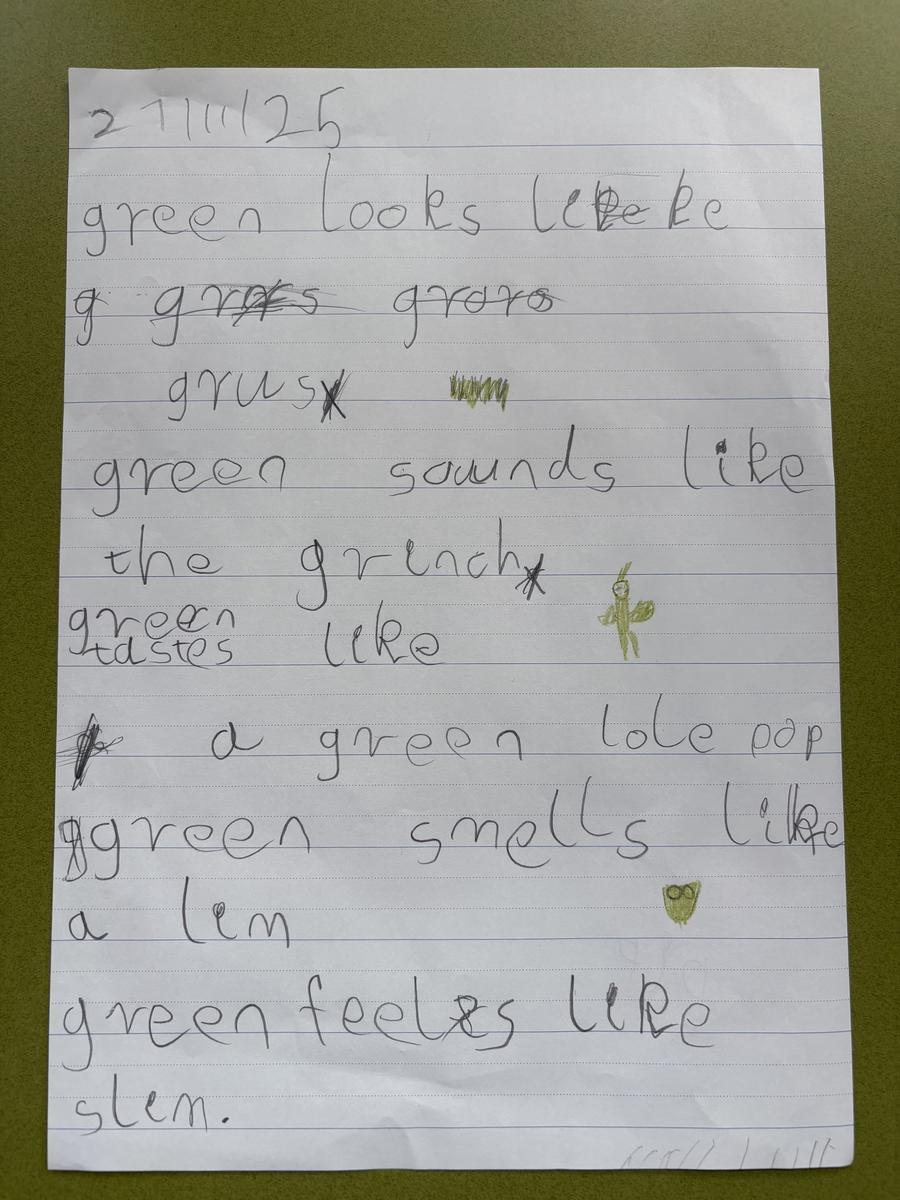 27/11/25
green looks like ke
g gross groro
grus
green sounds like
the grinch
green
tastes like
a green lole pop
green smells like
a lim
green feels like
slim.